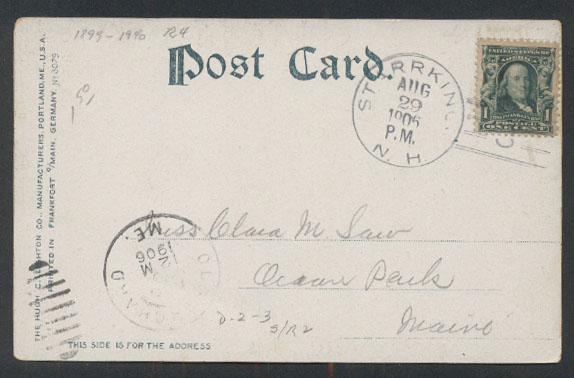 1899-1990 R4
Post Card.
STARRKING,
AUG
29
1906
P.M.
N. H.
1
POSTAGE
ONE CENT
THE HUGH C. LEIGHTON CO., MANUFACTURERS, PORTLAND, ME., U.S.A.
PRINTED IN FRANKFORT O/MAIN, GERMANY. No
1 50
Miss Clara M Saw
Ocean Park
Maine
OL ORCHARD
ME.
1906
M
D-2-3
S/R2
THIS SIDE IS FOR THE ADDRESS